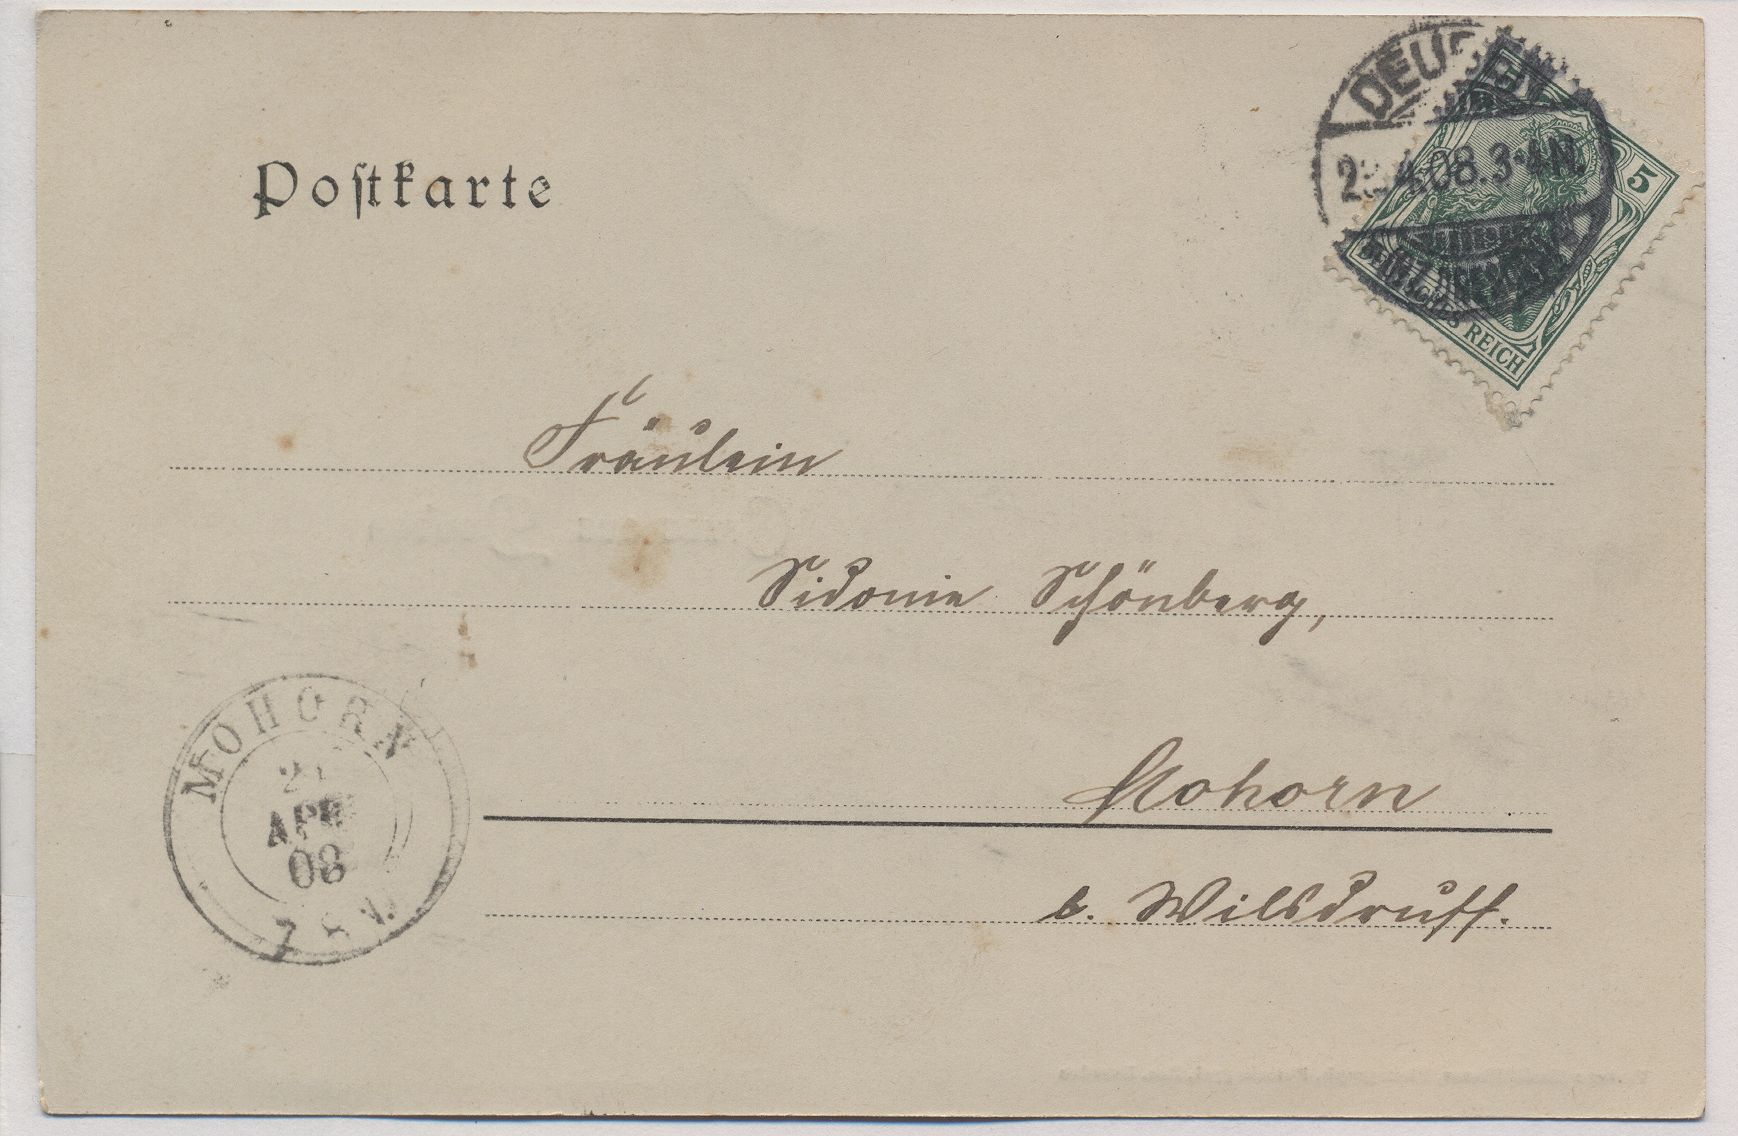 Postkarte
DEUBEN
4.08.3-4N.
5
DEUTSCHES REICH
Fräulein
Sidonie Schönberg,
Mohorn
b. Wilsdruff.
MOHORN
APR
08
7 8 N.